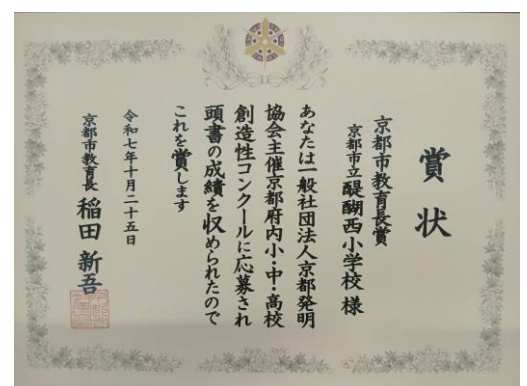 賞状
京都市教育長賞
京都市立醍醐西小学校 様
あなたは一般社団法人京都発明
協会主催京都府内小・中・高校
創造性コンクールに応募され
頭書の成績を収められたので
これを賞します
令和七年十月二十五日
京都市教育長 稲田 新吾